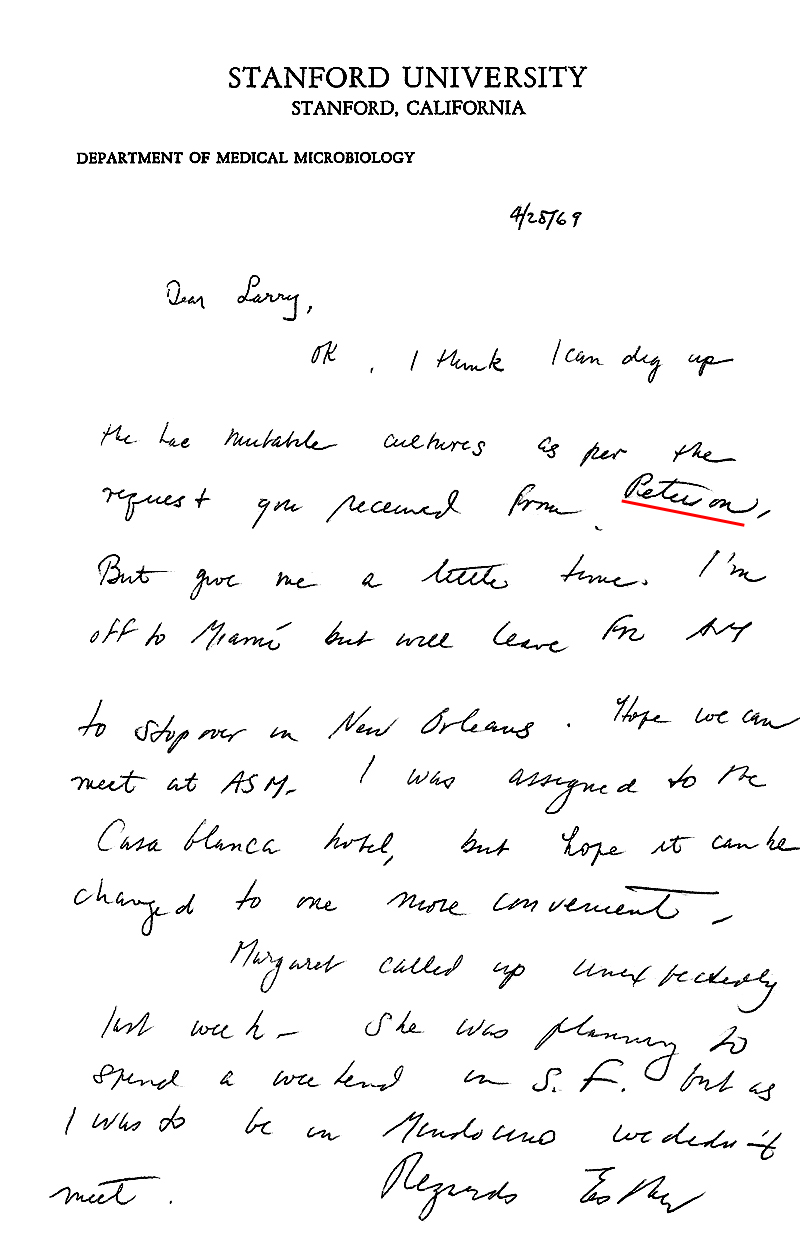 STANFORD UNIVERSITY
STANFORD, CALIFORNIA
DEPARTMENT OF MEDICAL MICROBIOLOGY
4/28/69
Dear Larry,
OK, I think I can dig up
the Lac mutable cultures as per the
request you received from Peterson,
But give me a little time. I'm
off to Miami but will leave
to stop over in New Orleans. Hope we can
meet at ASM. I was assigned to the
Casa blanca hotel, but hope it can be
changed to one more convenient.
Margaret called up unexpectedly
last week - She was planning to
spend a weekend in S. F. but as
I was to be in Mendocino we didn't
meet. Regards Esther